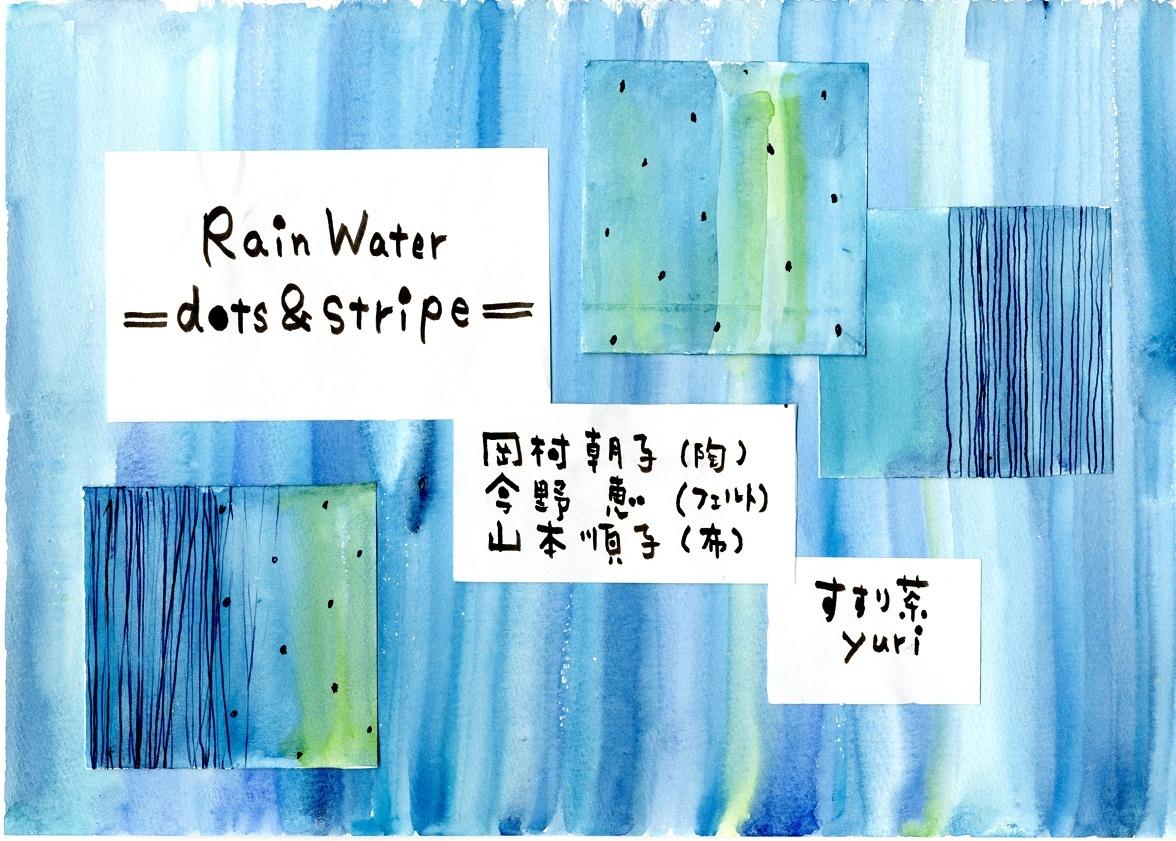 Rain Water
=dots & stripe=
岡村 朝子 (陶)
今野 恵 (フェルト)
山本 順子 (布)
すすり茶
yuri